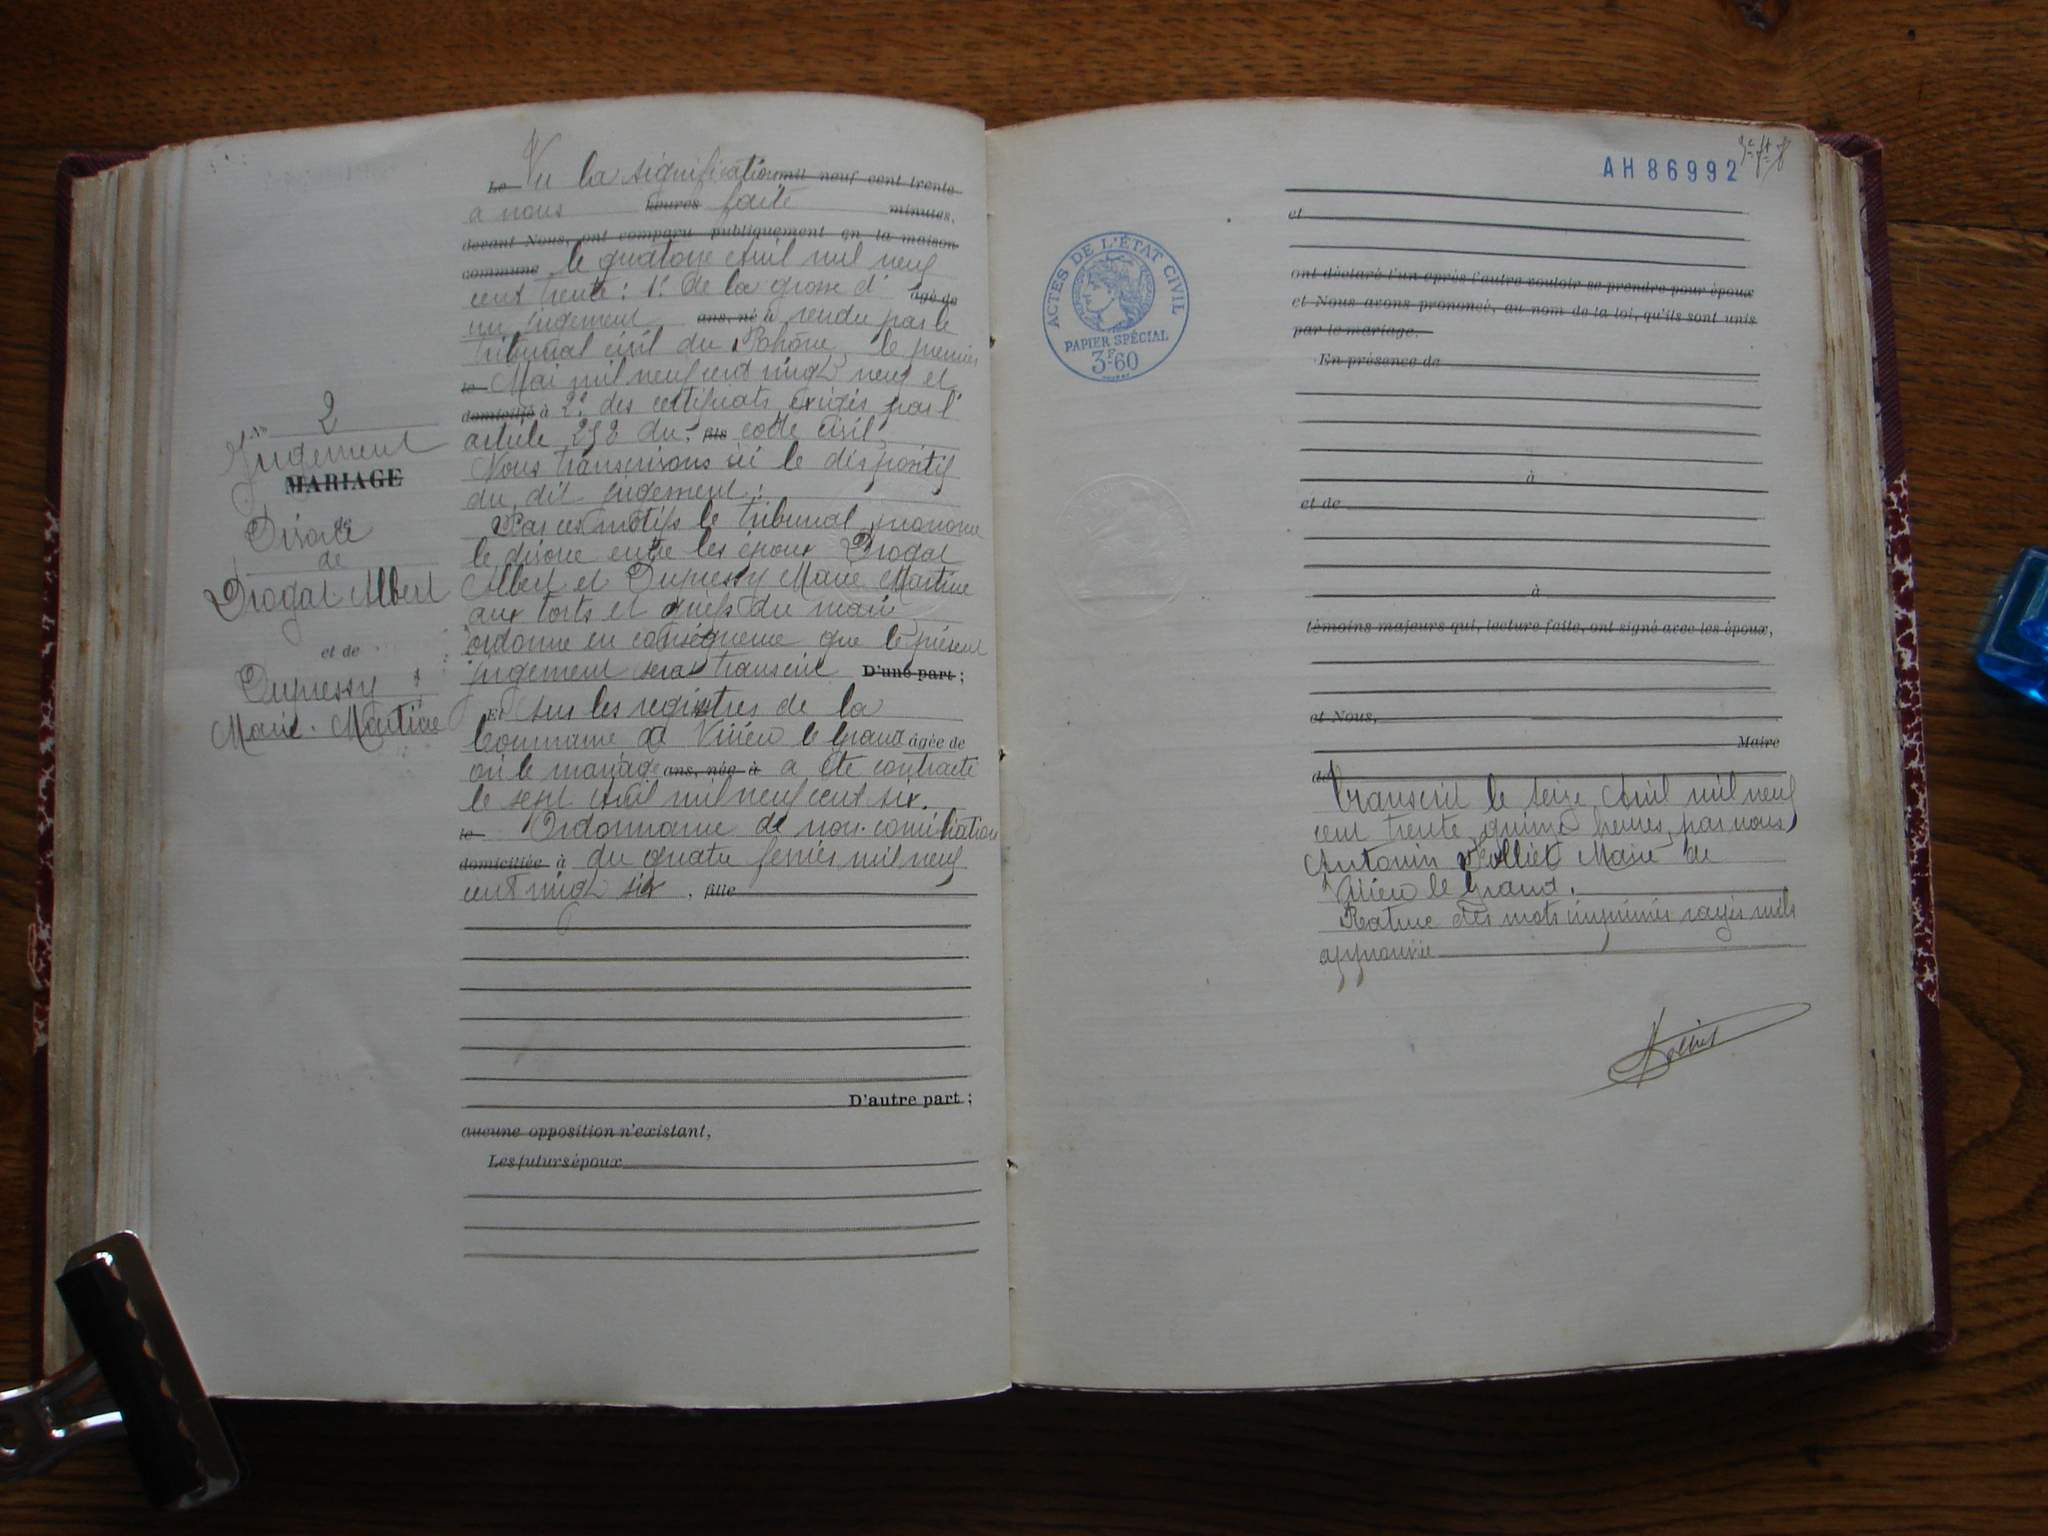 Nº 2
Jugement
MARIAGE
Divorce
de
Drogat Albert
et de
Dupressy
Marie-Martine
Le Vu la signification mil neuf cent trente
à nous heures faite minutes,
devant Nous, ont comparu publiquement en la maison
commune le quatorze Avril mil neuf
cent trente : 1º de la grosse d' âgé de
un jugement ans, né à rendu par le
tribunal civil du Rhône, le premier
le Mai mil neuf cent vingt neuf et
domicilié à 2º des certificats exigés par l'
article 252 du fils code civil,
Nous transcrivons ici le dispositif
du dit jugement :
Par ces motifs le tribunal prononce
le divorce entre les époux Drogat
Albert et Dupressy Marie Martine
aux torts et griefs du mari
ordonne en conséquence que le présent
jugement sera transcrit D'une part ;
Et sur les registres de la
Commune de Virieu le Grand âgée de
où le mariage ans, née à a été contracté
le sept avril mil neuf cent six.
le Ordonnance de non-conciliation
domiciliée à du quatre février mil neuf
cent vingt six , fille
D'autre part ;
aucune opposition n'existant,
Les futurs époux
AH 86992
ACTES DE L'ÉTAT CIVIL
PAPIER SPÉCIAL
3F60
et
ont déclaré l'un après l'autre vouloir se prendre pour époux
et Nous avons prononcé, au nom de la loi, qu'ils sont unis
par le mariage.
En présence de
à
et de
à
témoins majeurs qui, lecture faite, ont signé avec les époux,
et Nous,
Maire
de
Transcrit le seize Avril mil neuf
cent trente, quinze heures, par nous
Antonin Maire de
Virieu le Grand.
Rature des mots imprimés rayés nuls
approuvée